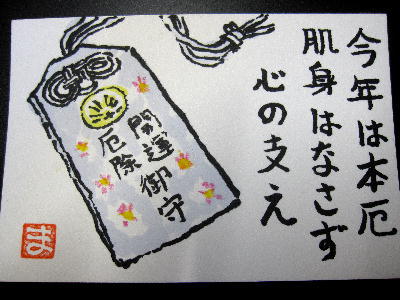 今年は本厄
肌身はなさず
心の支え
開運御守
厄除
ま